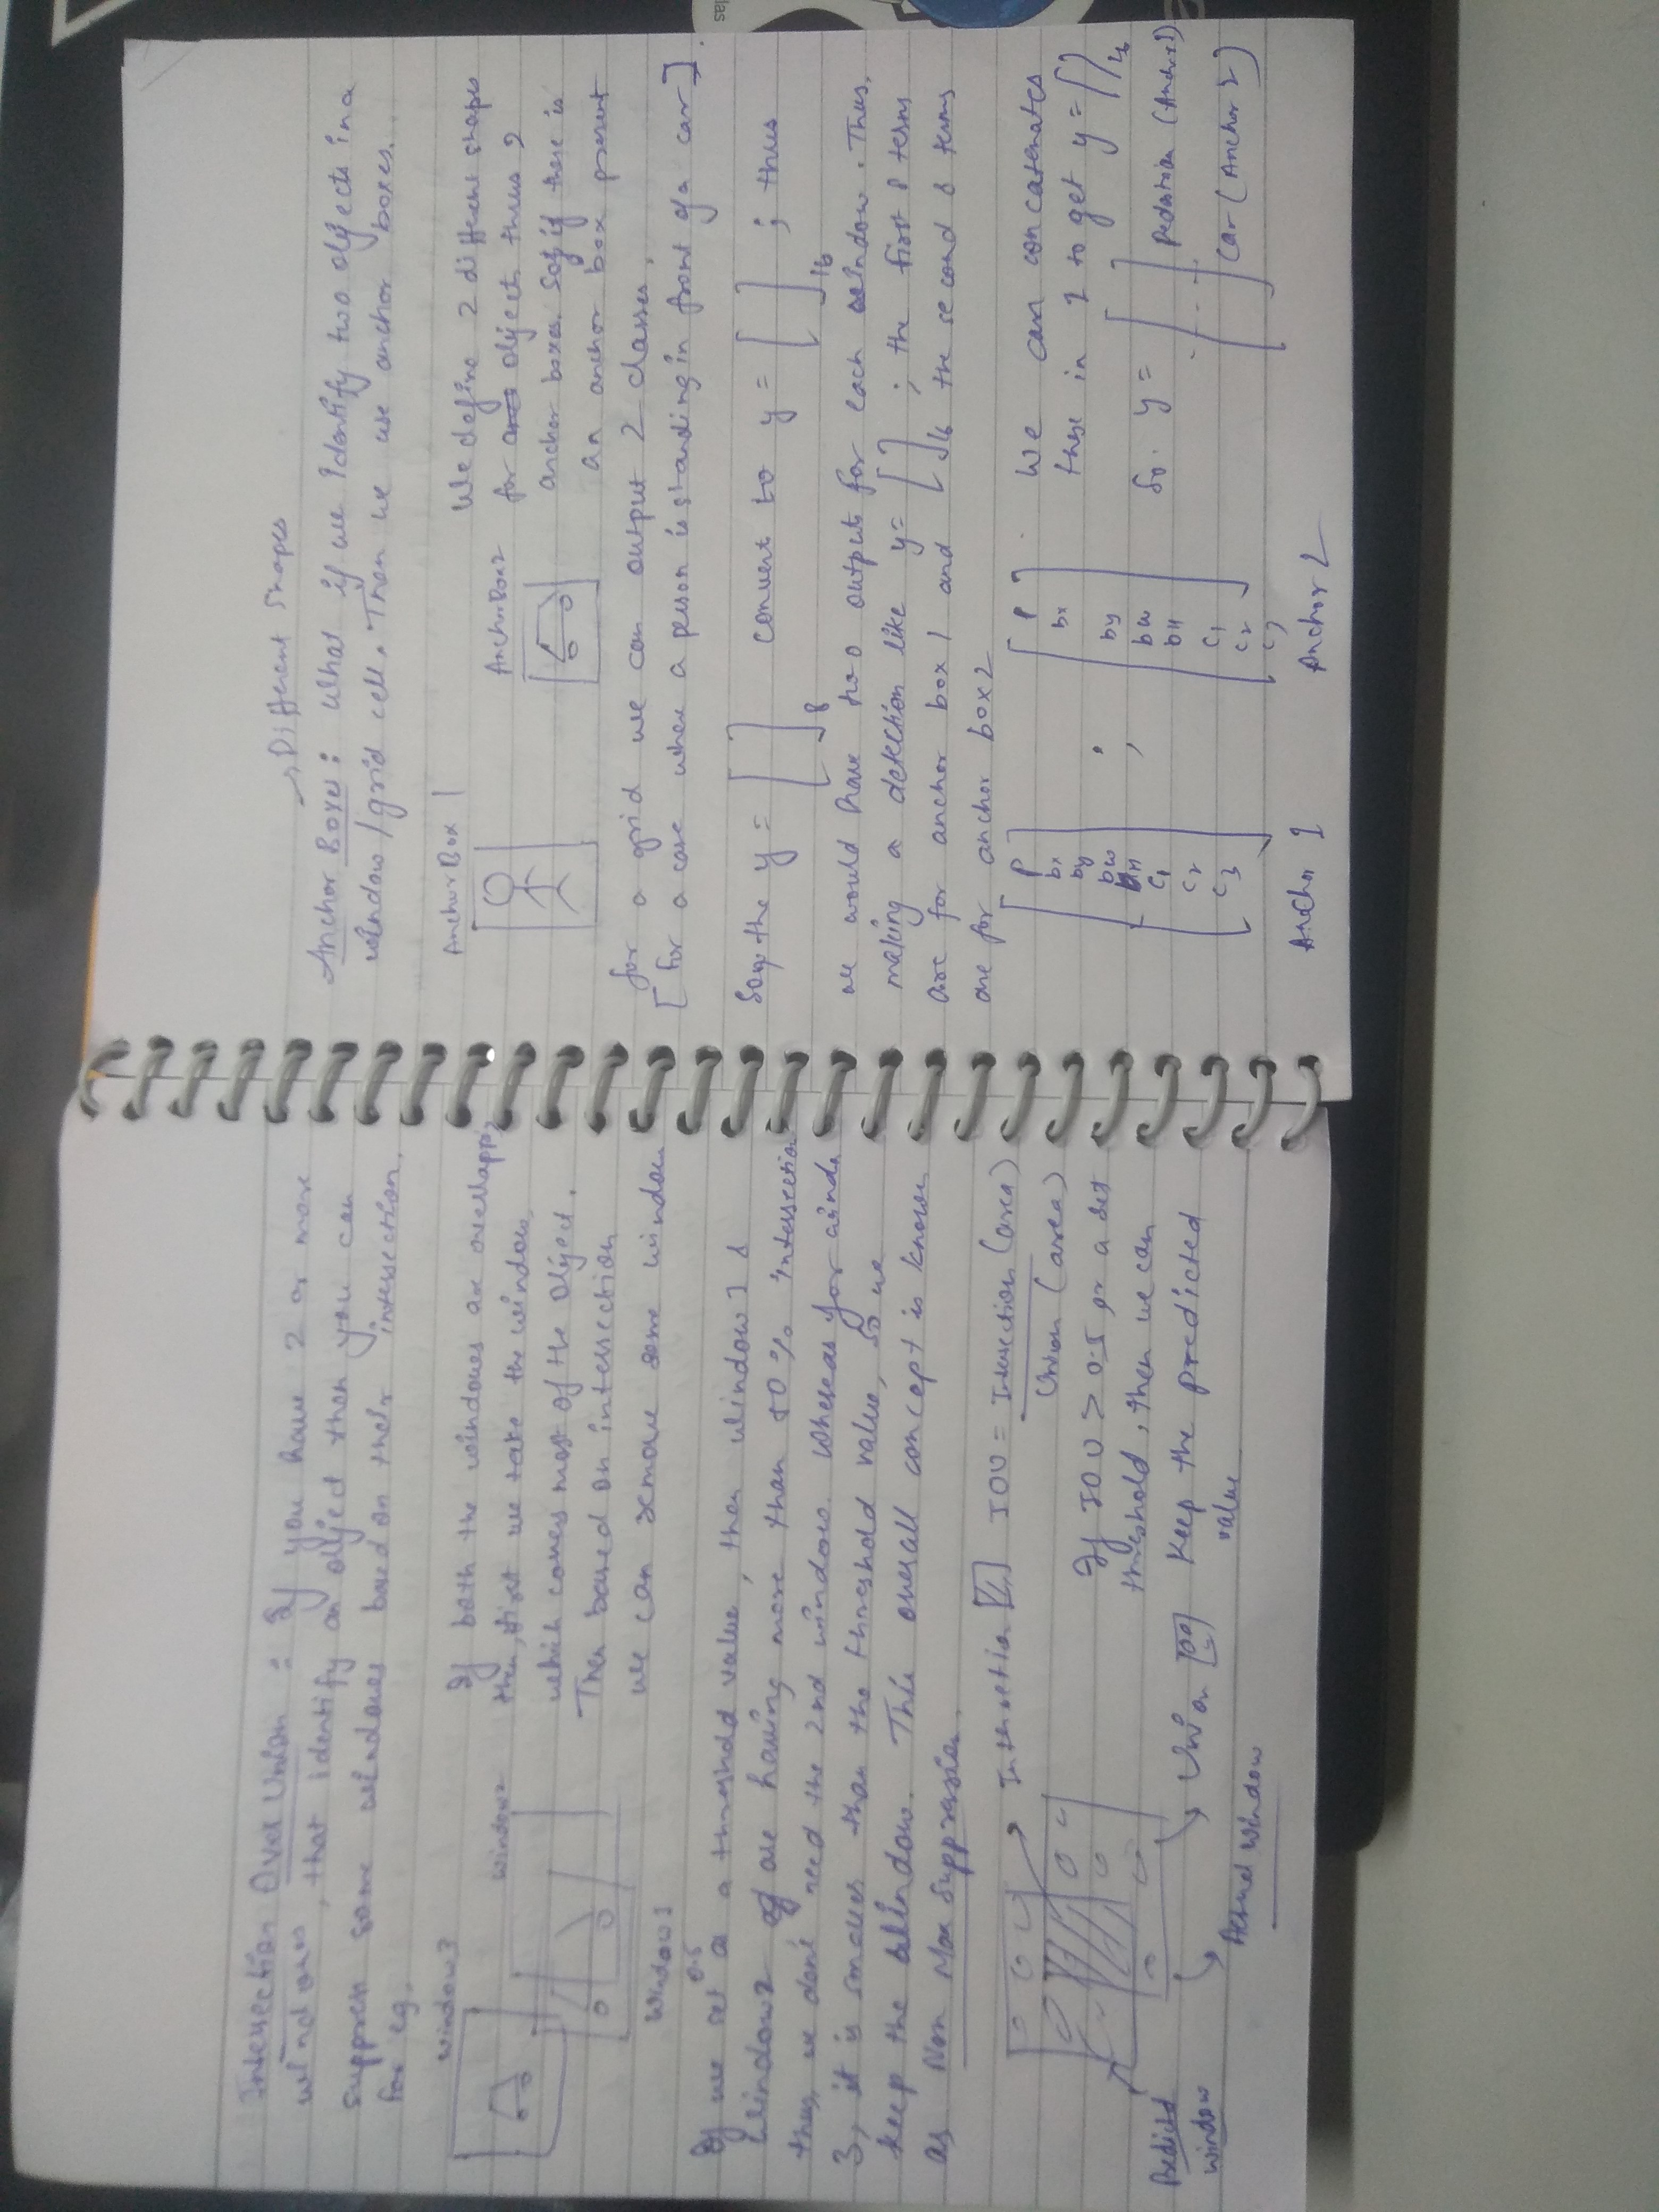 Intersection Over Union : If you have 2 or more
windows, that identify an object then you can
suppress some windows based on their intersection.
for eg.
window3
window2
window1
If both the windows are overlapp
then, first we take the window,
which comes most of the object.
Then based on intersection
we can remove some window
If we set a 0.5 a threshold value, then window 1 &
window2 are having more than 50% intersection
thus, we dont need the 2nd window. Whereas for windo
3, it is smaller than the threshold value, so we
keep the window. This overall concept is known
as Non Max Suppression.
Intersection
IOU = Intersection (area)
Union (area)
If IOU > 0.5 or a set
threshold, then we can
Union
keep the predicted
value
Predicted
window
Actual window
Different Shapes
Anchor Boxes : What if we identify two objects in a
window/grid cell. Then we use anchor boxes.
Anchor Box 1
Anchor Box 2
We define 2 different shapes
for object thus 2
anchor boxes. So, if there is
an anchor box present
for a grid we can output 2 classes.
[for a case when a person is standing in front of a car].
Say, the y = [ ]8 convert to y = [ ]16 ; thus
we would have two output for each window. Thus,
making a detection like y = [ ]16 ; the first 8 terms
are for anchor box 1 and the second 8 terms
are for anchor box 2
P
bx
by
bw
bH
c1
c2
c3
Anchor 1
P
bx
by
bw
bH
c1
c2
c3
Anchor 2
We can concatenates
these in 1 to get y = [ ]16
So. y =
Pedestrian (Anchor 1)
Car (Anchor 2)